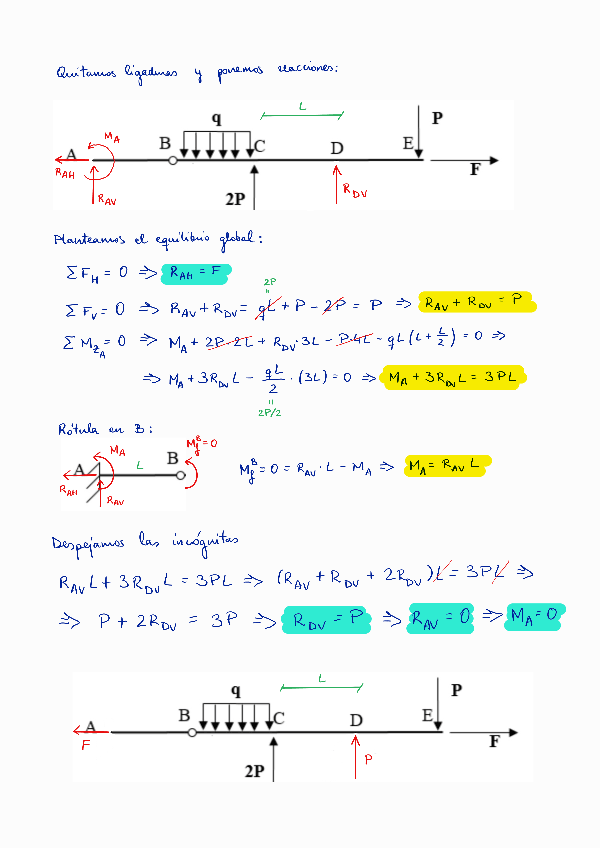 Quitamos ligaduras y ponemos reacciones:
L
q P
M_A
A B C D E
R_AH F
R_AV 2P R_DV
Planteamos el equilibrio global:
ΣF_H = 0 => R_AH = F
2P
"
ΣF_V = 0 => R_AV + R_DV = qL + P - 2P = P => R_AV + R_DV = P
ΣM_zA = 0 => M_A + 2P·2L + R_DV·3L - P·4L - qL(L + L/2) = 0 =>
=> M_A + 3R_DV L - qL/2 · (3L) = 0 => M_A + 3R_DV L = 3PL
"
2P/2
Rótula en B:
M_A M_f^B = 0
A L B
R_AH R_AV
M_f^B = 0 = R_AV · L - M_A => M_A = R_AV L
Despejamos las incógnitas
R_AV L + 3R_DV L = 3PL => (R_AV + R_DV + 2R_DV)L = 3PL =>
=> P + 2R_DV = 3P => R_DV = P => R_AV = 0 => M_A = 0
L
q P
A B C D E
F F
2P P